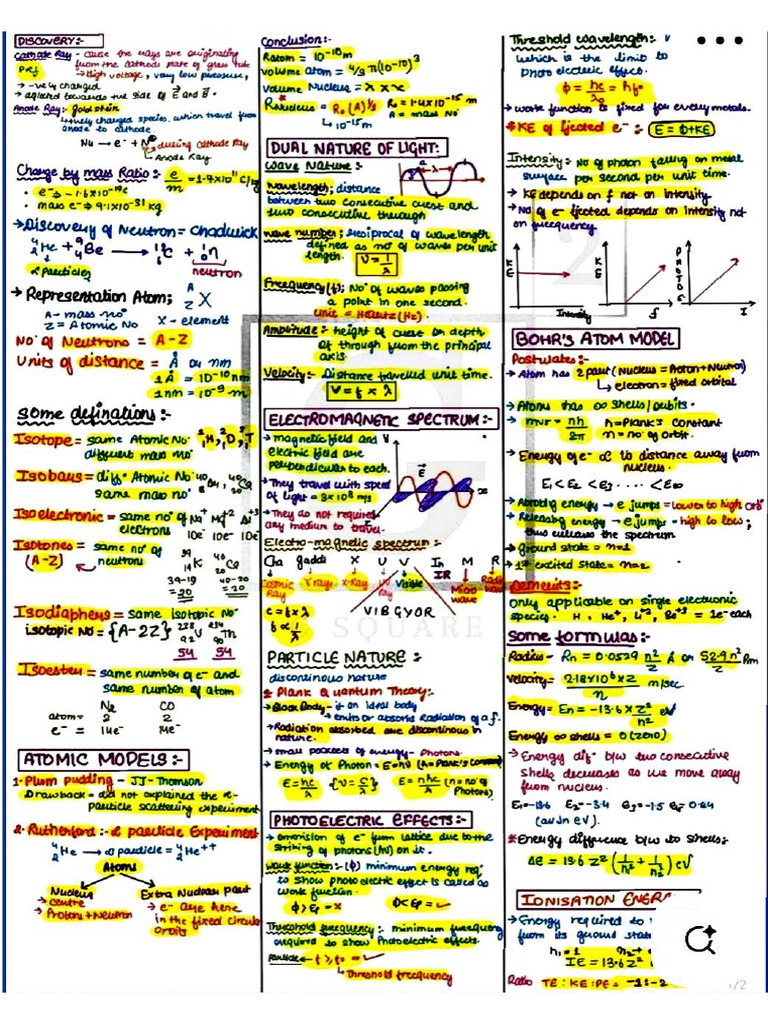 DISCOVERY:-
Cathode Ray - Cause the rays are originating
from the cathode plate of glass tube
→ High voltage, very low pressure,
→ -vely charged
→ deflected towards the side of E and B.
Anode Ray:- Goldstein
→ +vely charged species, which travel from
anode to cathode.
→ e⁻ + N⊕ → during Cathode Ray
→ Anode Ray
Charge by mass Ratio:- e/m = 1.7×10¹¹ C/kg
• e⁻ → -1.6×10⁻¹⁹C
• mass e⁻ → 9.1×10⁻³¹ kg
→ Discovery of Neutron = Chadwick
⁴₂He + ⁹₄Be → ¹²₆C + ¹₀n
→ α particles neutron
→ Representation Atom; ᴬ_Z X
A - mass no
Z = Atomic No X - element
No of Neutrons = A-Z
Units of distance = Å or nm
1Å = 10⁻¹⁰ nm
1nm = 10⁻⁹ m
Some definations:-
Isotope = same Atomic No. ¹₁H, ²₁D, ³₁T
different mass no
Isobars = diff. Atomic No. ⁴⁰Ar, ⁴⁰Ca
same mass no
Isoelectronic = same no of Na⁺ Mg⁺² Al⁺³
electrons 10e⁻ 10e⁻ 10e⁻
Isotones = same no of
(A-Z) neutrons ³⁹₁₉K ⁴⁰₂₀Ca
39-19 = 20 40-20 = 20
Isodiapheres = same isotopic No
isotopic No = {A-2Z} ²³⁸₉₂U ²³⁴₉₀Th
54 54
Isoesteu = same number of e⁻ and
same number of atom
N₂ CO
atom = 2 2
e⁻ = 14e⁻ 14e⁻
ATOMIC MODELS:-
1. Plum pudding - JJ-Thomson
Drawback = did not explained the α-
particle scattering experiment
2. Rutherford:- α particle Experiment
⁴₂He → α particle = ⁴₂He⁺⁺
Atoms
Nucleus Extra Nuclear part
→ centre → e⁻ are here
→ Protons + Neutron in the fixed circular
orbits
Conclusion:-
Ratom = 10⁻¹⁰m
Volume atom = 4/3 π(10⁻¹⁰)³
Volume Nucleus =
RNucleus = R₀(A)^1/3 R₀ = 1.4×10⁻¹⁵ m
→ 10⁻¹⁵m A = mass No
DUAL NATURE OF LIGHT:
Wave Nature:-
Wavelength; distance
between two consecutive crest and
two consecutive through
wave number; reciprocal of wavelength
defined as no of waves per unit
length. V = 1/λ
Frequency(f); No of waves passing
a point in one second.
Unit = Hertz(Hz)
Amplitude:- height of crest on depth
of through from the principal
axis.
Velocity:- Distance travelled unit time.
V = f × λ
ELECTROMAGNETIC SPECTRUM:-
→ magnetic field and
electric field are
perpendicular to each.
→ They travel with speed
of light = 3×10⁸ m/s
→ They do not required
any medium to travel.
Electro-magnetic spectrum:-
Cha gaddi X U V In M R
Cosmic Ray γ rays X-Ray UV ray Visible IR Micro wave Radio wave
VIBGYOR
c = f × λ
f ∝ 1/λ
SQUARE
PARTICLE NATURE:
discontinous nature
Plank Quantum Theory:-
→ Black Body - it on ideal body
→ emits or absorb Radiation of a f.
→ Radiation absorbed are discontinous in
nature.
→ small packets of energy - Photons
→ Energy of Photon = E = hν (h = Plank's constant)
E = hc/λ {ν = c/λ} E = nhc/λ (n = no of
Photons)
PHOTOELECTRIC EFFECTS:-
→ emmision of e⁻ from lattice due to the
striking of photons (hν) on it.
Work function:- (ϕ) minimum energy req
to show photo electric effect is called as
work function.
Threshold frequency:- minimum frequency
required to show Photoelectric effect.
Particle - f ≥ f₀ = ✓
→ Threshold frequency
Threshold wavelength:
which is the limit to
photo electric effect.
ϕ = hc/λ₀ = hf₀
→ work function is fixed for every metals.
*KE of ejected e⁻:- E = ϕ+KE
Intensity:- No of photon falling on metal
surface per second per unit time.
→ KE depends on f not on intensity.
→ No of e⁻ ejected depends on intensity not
on frequency.
KE Intensity KE f PHOTO e I
BOHR'S ATOM MODEL
Postulates:-
→ Atom has 2 part (Nucleus = Proton+Neutron)
→ electron = fixed orbital
→ Atoms has ∞ shells/orbits.
→ mvr = nh/2π h = Plank's Constant
n = no of orbit.
→ Energy of e⁻ ∝ to distance away from
nucleus.
E₁ < E₂ < E₃ .... < E∞
→ Absorbing energy → e jumps = lower to high orb
→ Releasing energy → e jumps = high to low;
thus the spectrum
→ Ground state = n=1
→ 1st excited state = n=2
Demerits:-
only applicable on single electronic
species. H, He⁺, Li⁺², Be⁺³ = 1e⁻ each
Some formulas:-
Radius - Rn = 0.0529 n²/Z Å or 52.9 n²/Z Pm
Velocity = 2.18×10⁶×Z/n m/sec
Energy = En = -13.6 × Z²/n² eV
Energy ∞ shells = 0 (zero)
→ Energy dif. b/w two consecutive
shells decreases as we move away
from nucleus.
E₁ = -13.6 E₂ = -3.4 E₃ = -1.5 E₄ = 0.84
(all in eV).
*Energy difference b/w to shells:-
ΔE = 13.6 Z² (1/n² + 1/n²) eV
IONISATION ENER
→ Energy required to
from its ground stat
n₁ = 1 n₂ →
IE = 13.6 Z²
Ratio TE : KE : PE = -1:1:-2
1/2